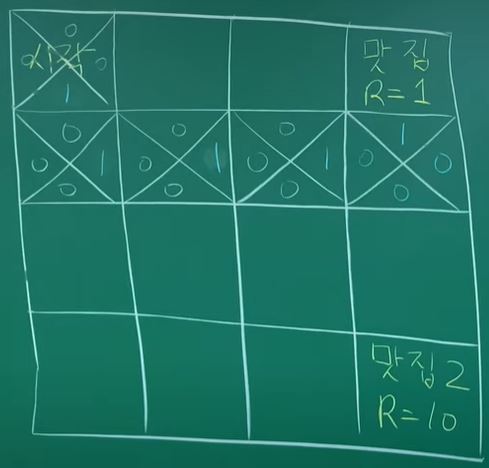 0
시작 0
1
맛집
R=1
0 0 0 1
0 1 0 1 0 1 0 0
0 0 0 0
맛집2
R=10